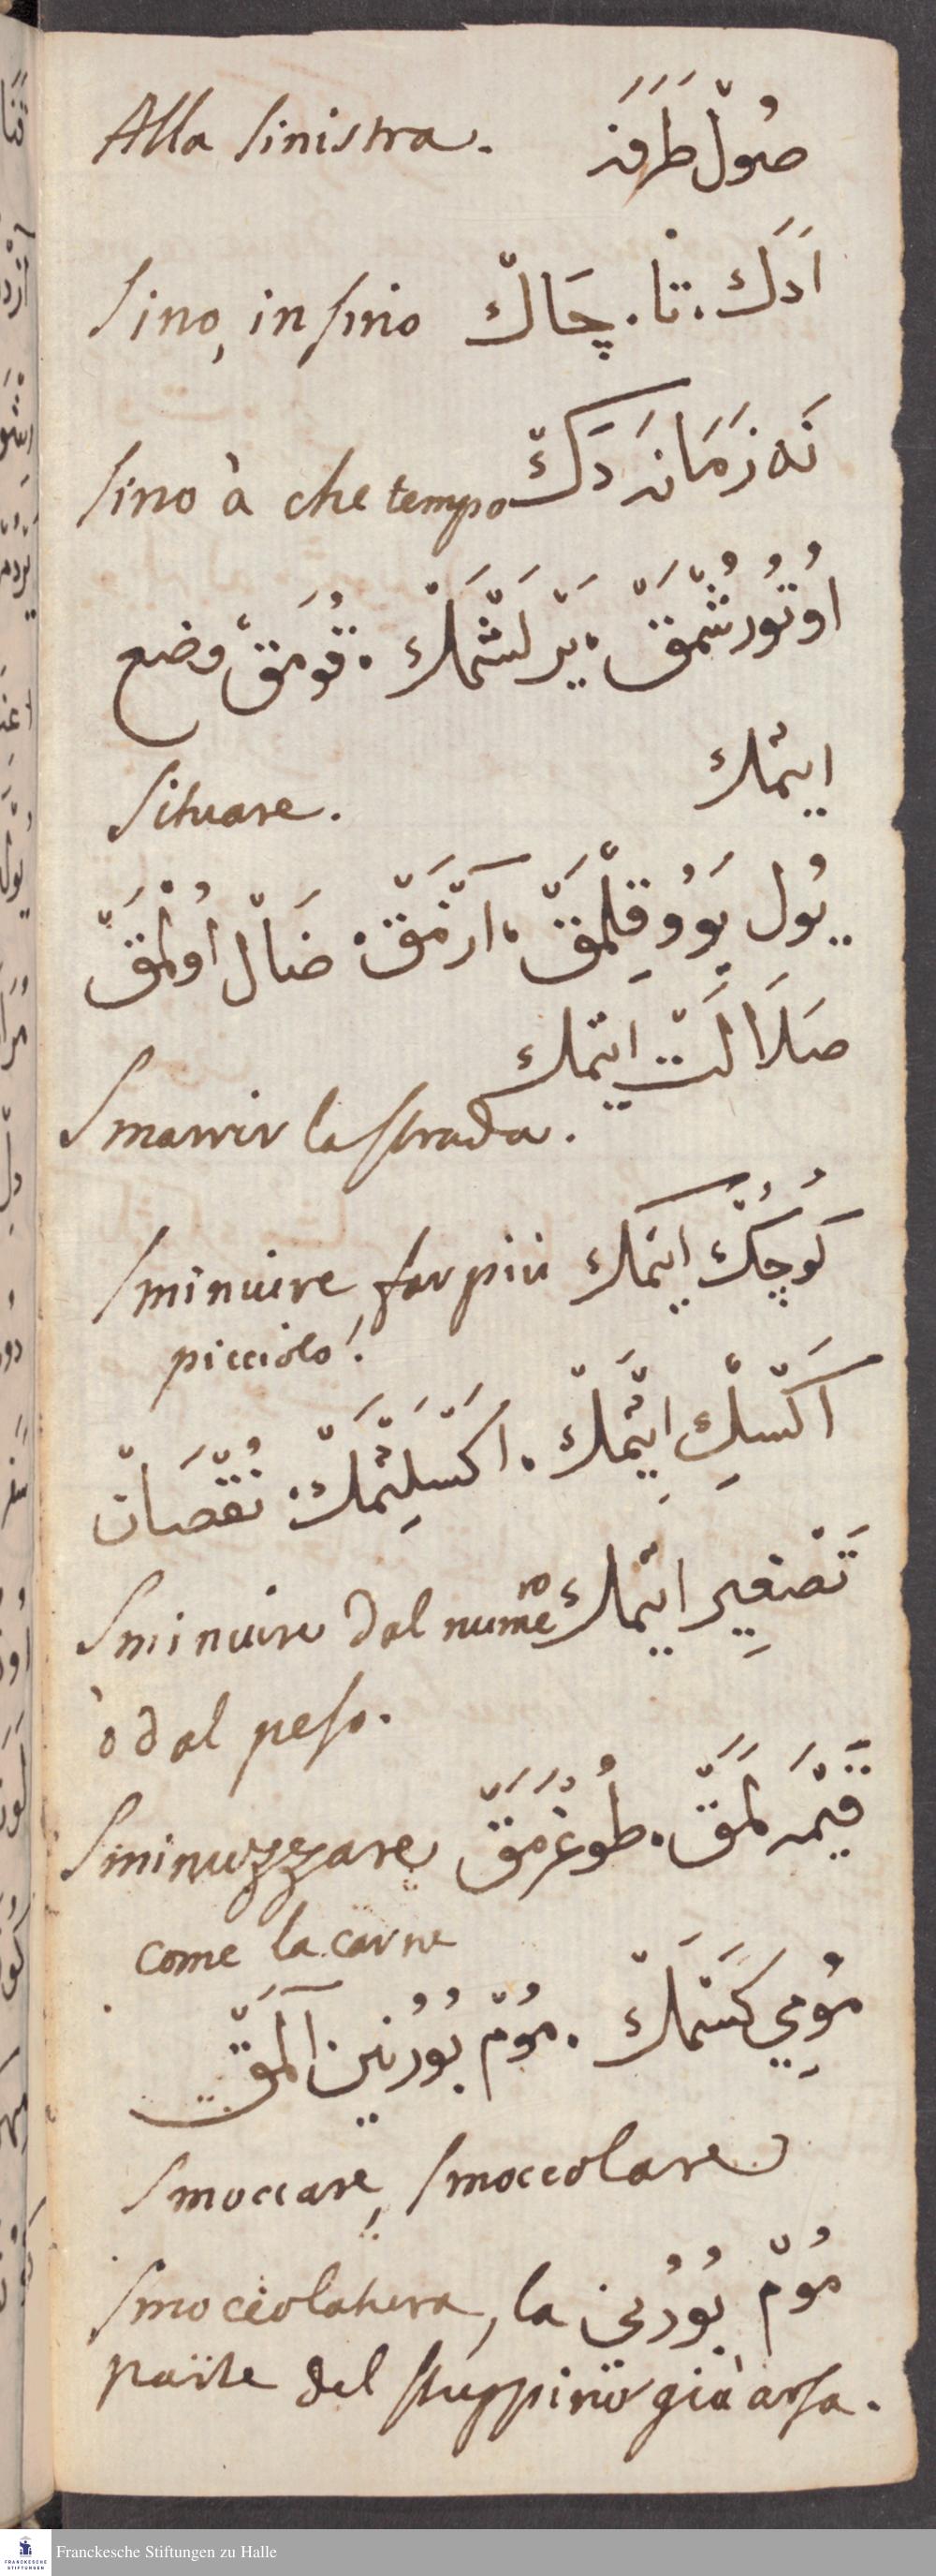 Alla sinistra. صُولْ طَرَفَنَ
Sino, in sino اَدَك. تا. چَاكْ
sino à che tempo نَه زَمَانَه دَكْ
اُوتُورُشْمَقْ، يَرْلَشْمَكْ. قُومَقْ وضع
ايتمْك
Situare.
يُول يَوُو قِلْمَقْ، آرْمَقْ. ضَالْ اُولْمَقْ
ضَلَالَتْ ايتمك
Smarrir la strada.
Sminuire, far più كُوچُكْ ايتمك
picciolo.
اَكْسِكْ ايتْمَكْ. اَكْسِلِتْمَكْ. نُقْصَانْ
Sminuire dal numero تَصْغِير ايتمْك
ò dal peso.
Sminuzzare قَيْمَه لَمَقْ. طُوغْرَمَقْ
come la carne
مُومِي كَسْمَكْ. مُومْ بُورُنِين اَلْمَقْ
Smoccare, smoccolare
Smoccolatura, la مُومْ بُورُنِي
parte del stuppino già arsa.
Franckesche Stiftungen zu Halle